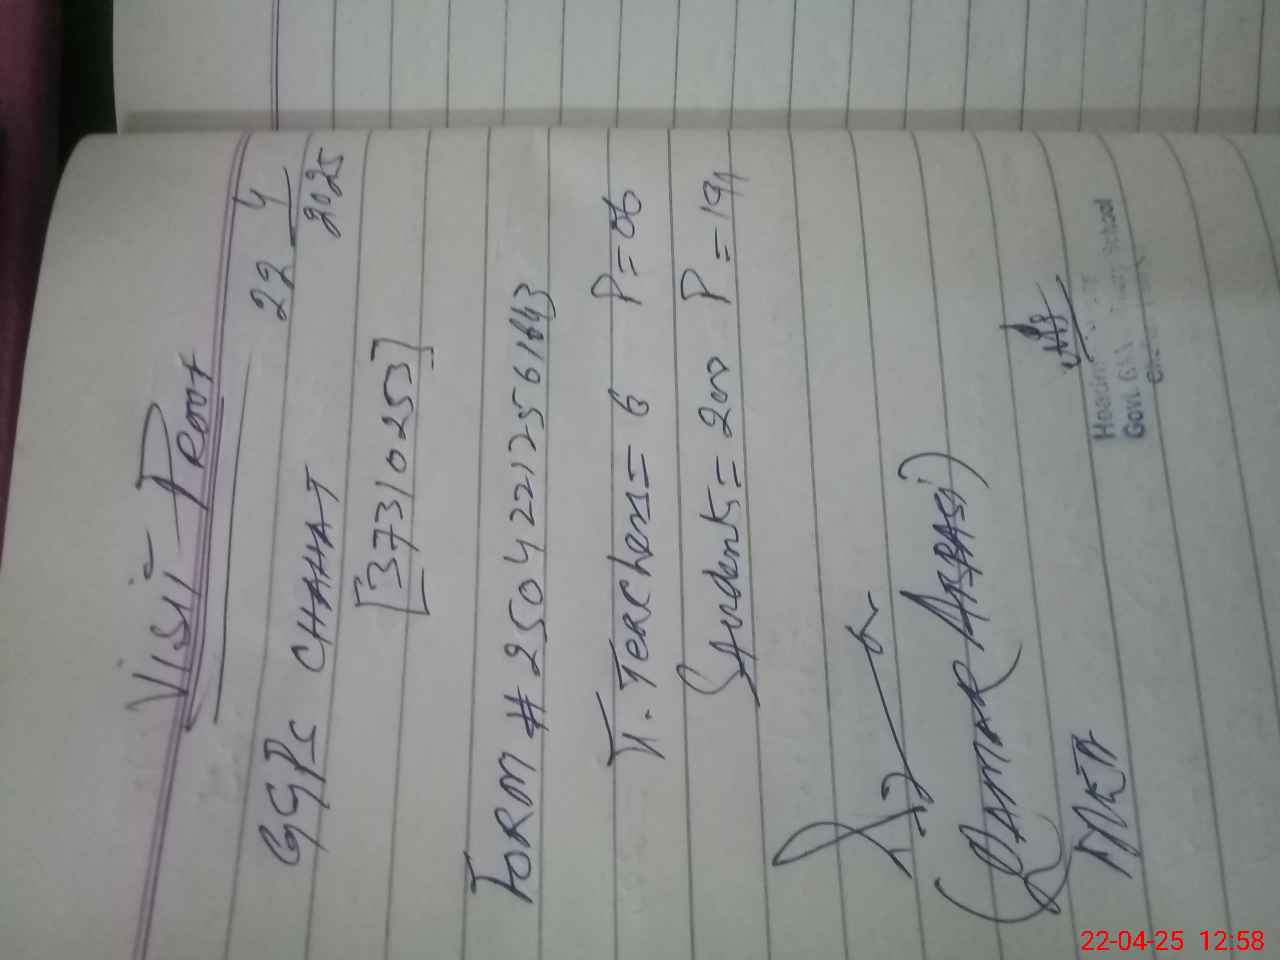 Visit Proof
GGPS CHAHAT 22/4/2025
[37310253]
FORM # 25042212561643
T. Teachers = 6 P = 06
Students = 200 P = 191
(QAMAR ABBASI)
MEA
Govt. School
22-04-25 12:58